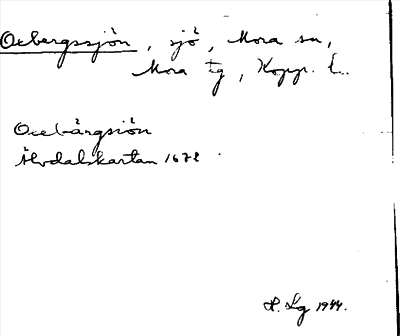 Oxbergssjön, sjö, Mora sn,
Mora tg, Kopp. l.
Oxebärgsiön
Älvdalskartan 1672
H. Lg 1944.